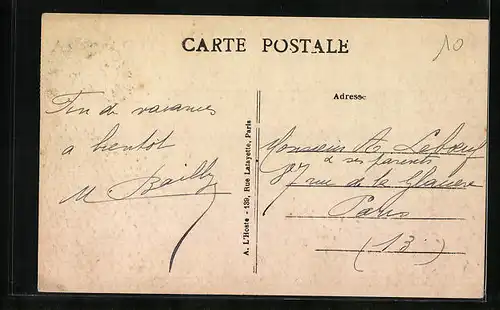 CARTE POSTALE
10
Adresse
Fin de vacances
a bientôt
M Bailly
A. L'Hoste - 139, Rue Lafayette, Paris
Monsieur A. Lebœuf
& ses parents
87 rue de la Glaciere
Paris
(13)